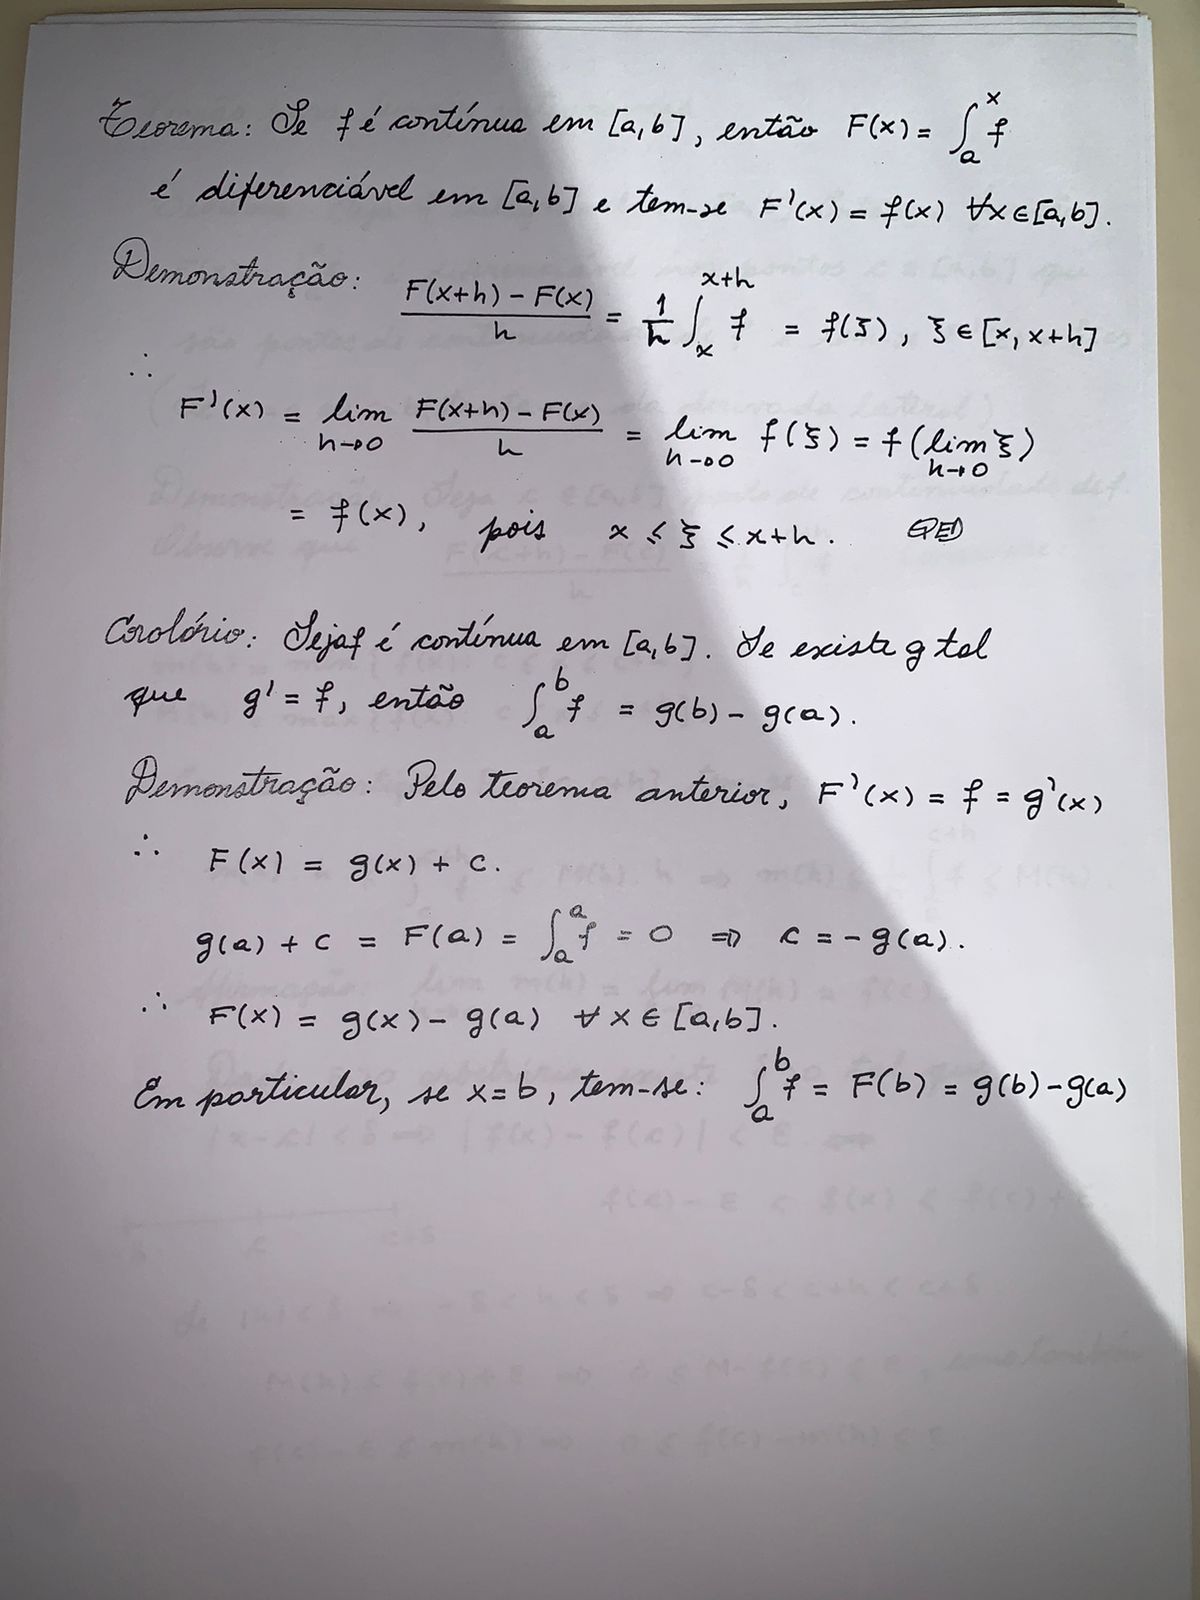 Teorema: Se f é contínua em [a,b], então F(x) = ∫_a^x f
é diferenciável em [a,b] e tem-se F'(x) = f(x) ∀x∈[a,b].
Demonstração: (F(x+h) - F(x))/h = 1/h ∫_x^{x+h} f = f(ξ), ξ ∈ [x, x+h]
∴ F'(x) = lim_{h→0} (F(x+h) - F(x))/h = lim_{h→0} f(ξ) = f(lim_{h→0} ξ)
= f(x), pois x ≤ ξ ≤ x+h. QED
Corolário: Seja f é contínua em [a,b]. Se existe g tal
que g' = f, então ∫_a^b f = g(b) - g(a).
Demonstração: Pelo teorema anterior, F'(x) = f = g'(x)
∴ F(x) = g(x) + c.
g(a) + c = F(a) = ∫_a^a f = 0 ⇒ c = -g(a).
∴ F(x) = g(x) - g(a) ∀ x ∈ [a,b].
Em particular, se x=b, tem-se: ∫_a^b f = F(b) = g(b)-g(a)